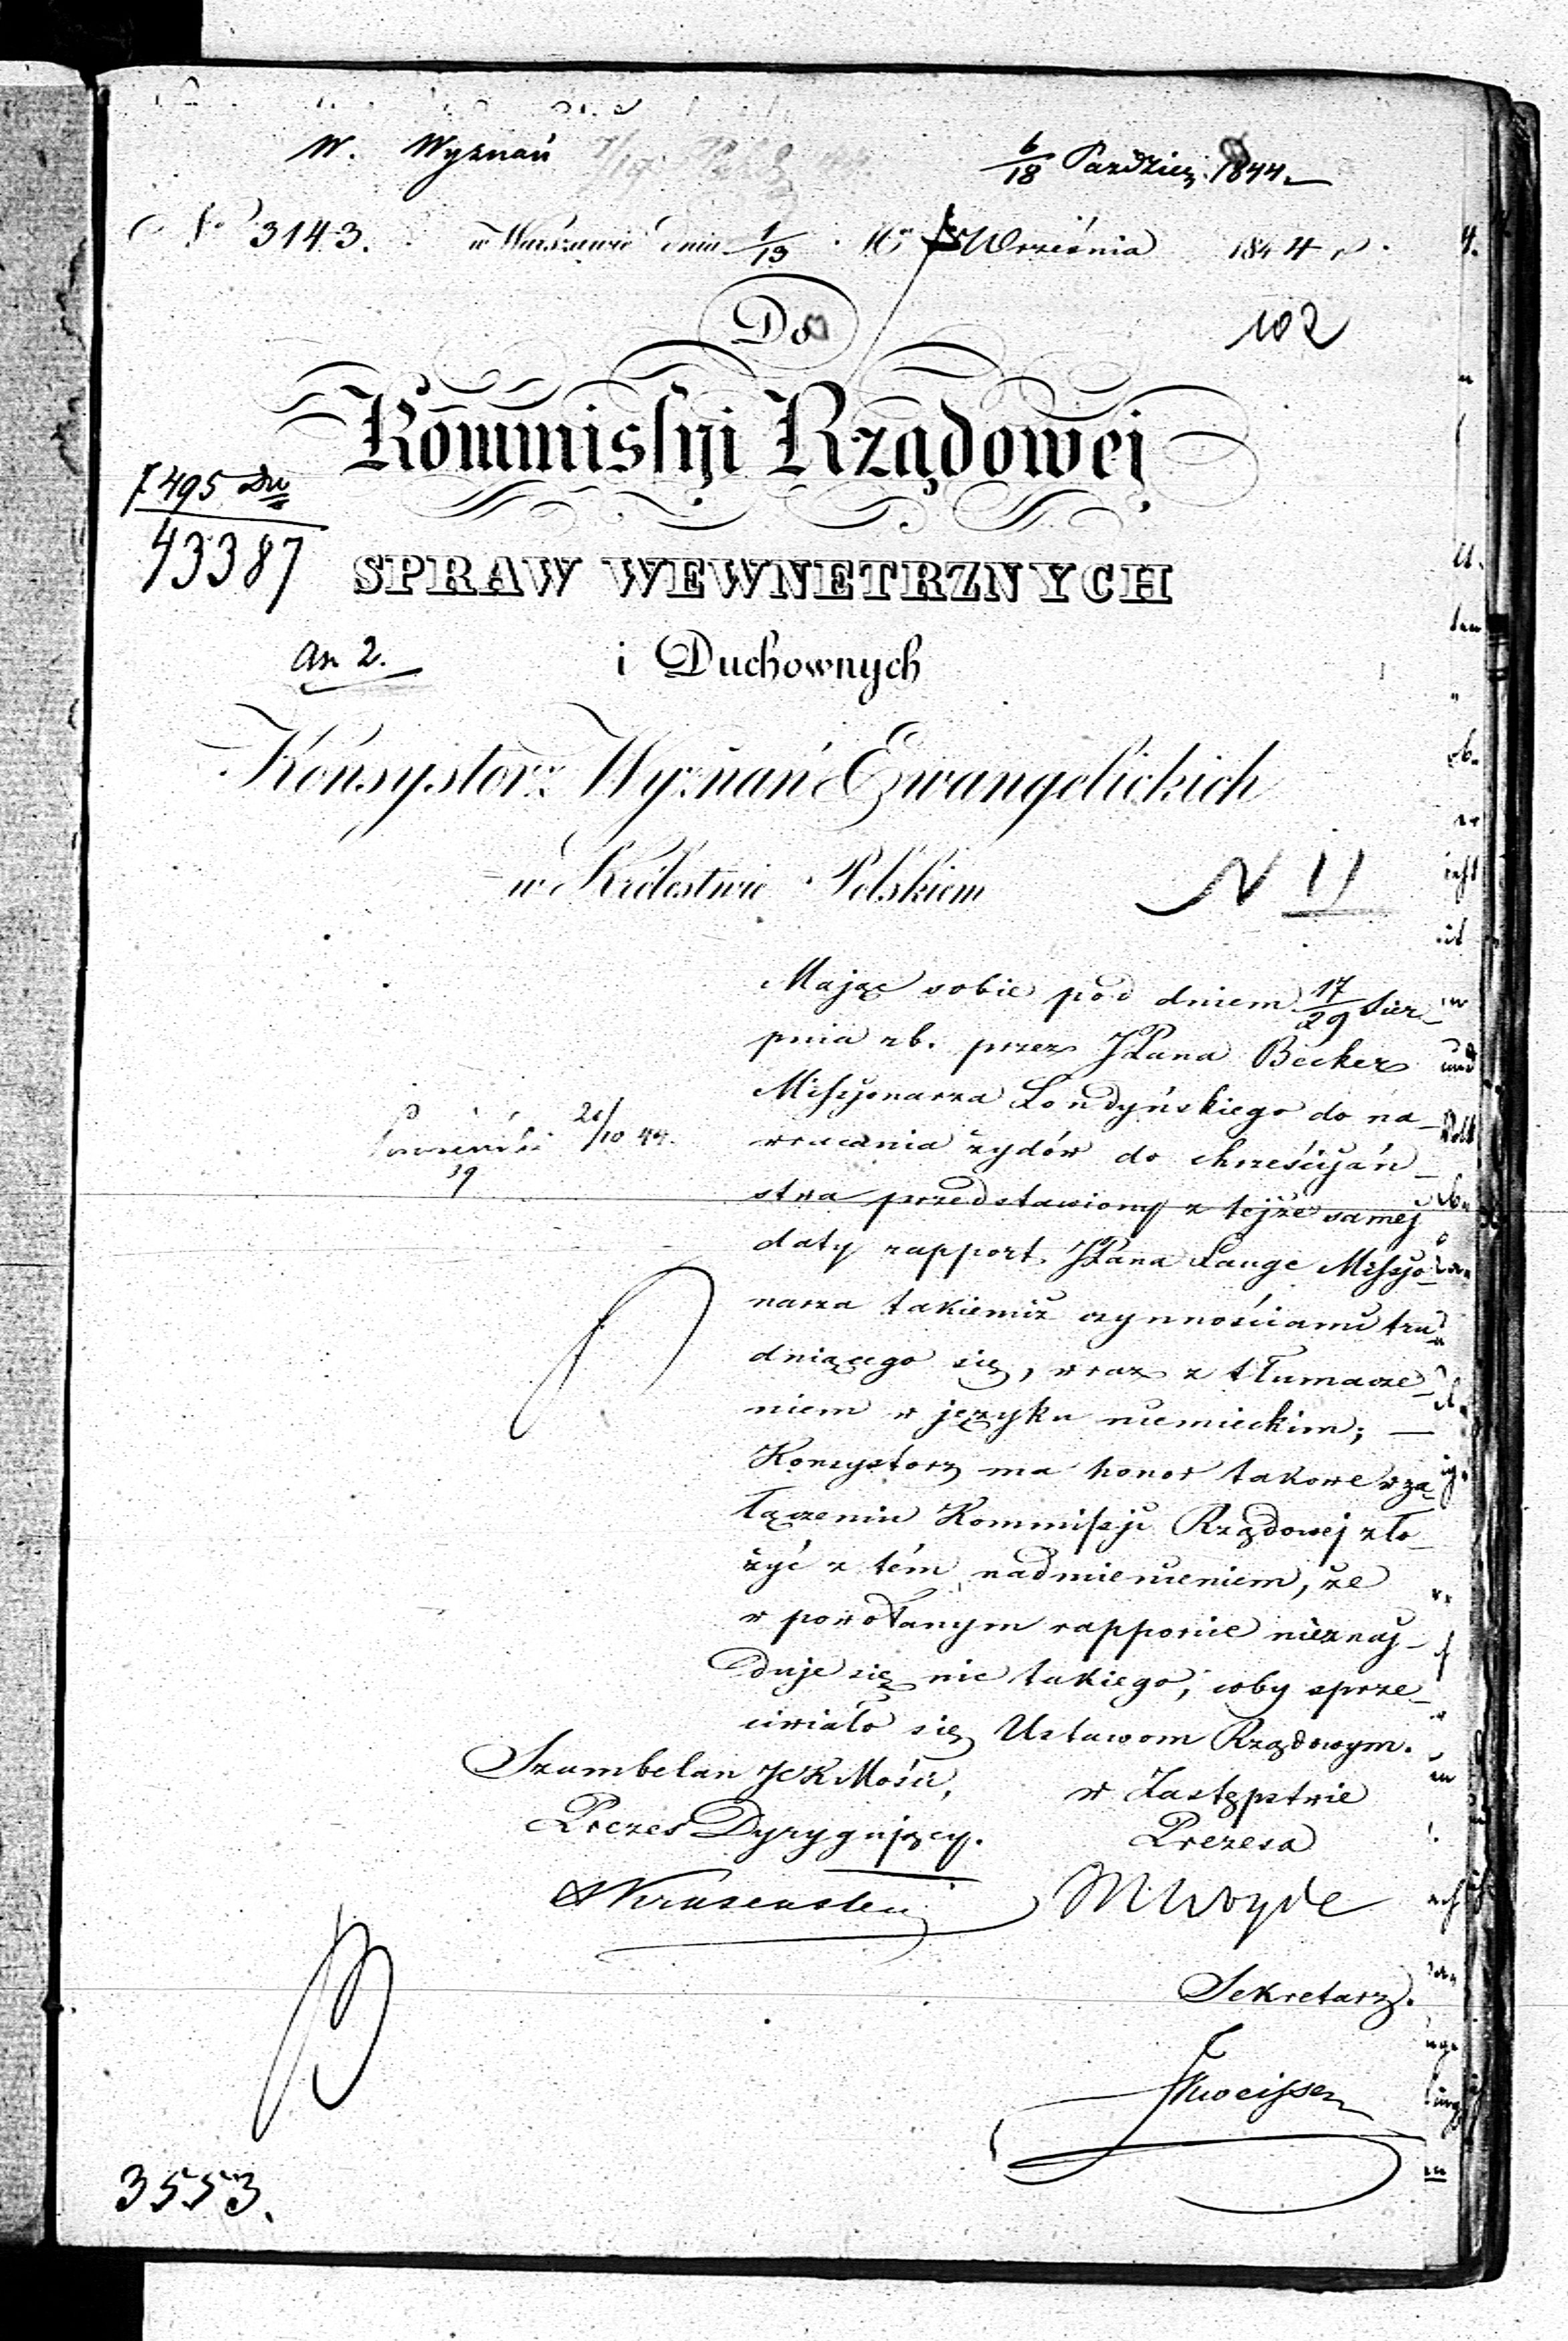 W. Wyznań
6/18 Paździer. 1844
No 3143. w Warszawie dnia 1/13 Września 1844 r.
Do
102
Kommissyi Rządowej
7495 Dw
43387
SPRAW WEWNETRZNYCH
an 2.
i Duchownych
Konsystorz Wyznań Ewangelickich
w Królestwie Polskiem
N 11
Mając sobie pod dniem 17/29 Sier-
pnia rb. przez JPana Becker
Missyonarza Londyńskiego do na-
wracania żydów do chrześcijań-
20/10 44.
stwa przedstawiony z tejże samej
daty rapport JPana Lange Missyo-
narza takiemiż czynnościami tru-
dniącego się, wraz z tłumacze-
niem w języku niemieckim; —
Konsystorz ma honor takowe w za-
łączeniu Kommissyi Rządowej zło-
żyć z tém nadmienieniem, że
w powołanym rapporcie nieznaj-
duje się nic takiego, coby sprze-
ciwiało się Ustawom Rządowym.
Szambelan JCKMości,
Prezes Dyrygujący.
w Zastępstwie
Prezesa
M Woyde
Sekretarz.
3553.